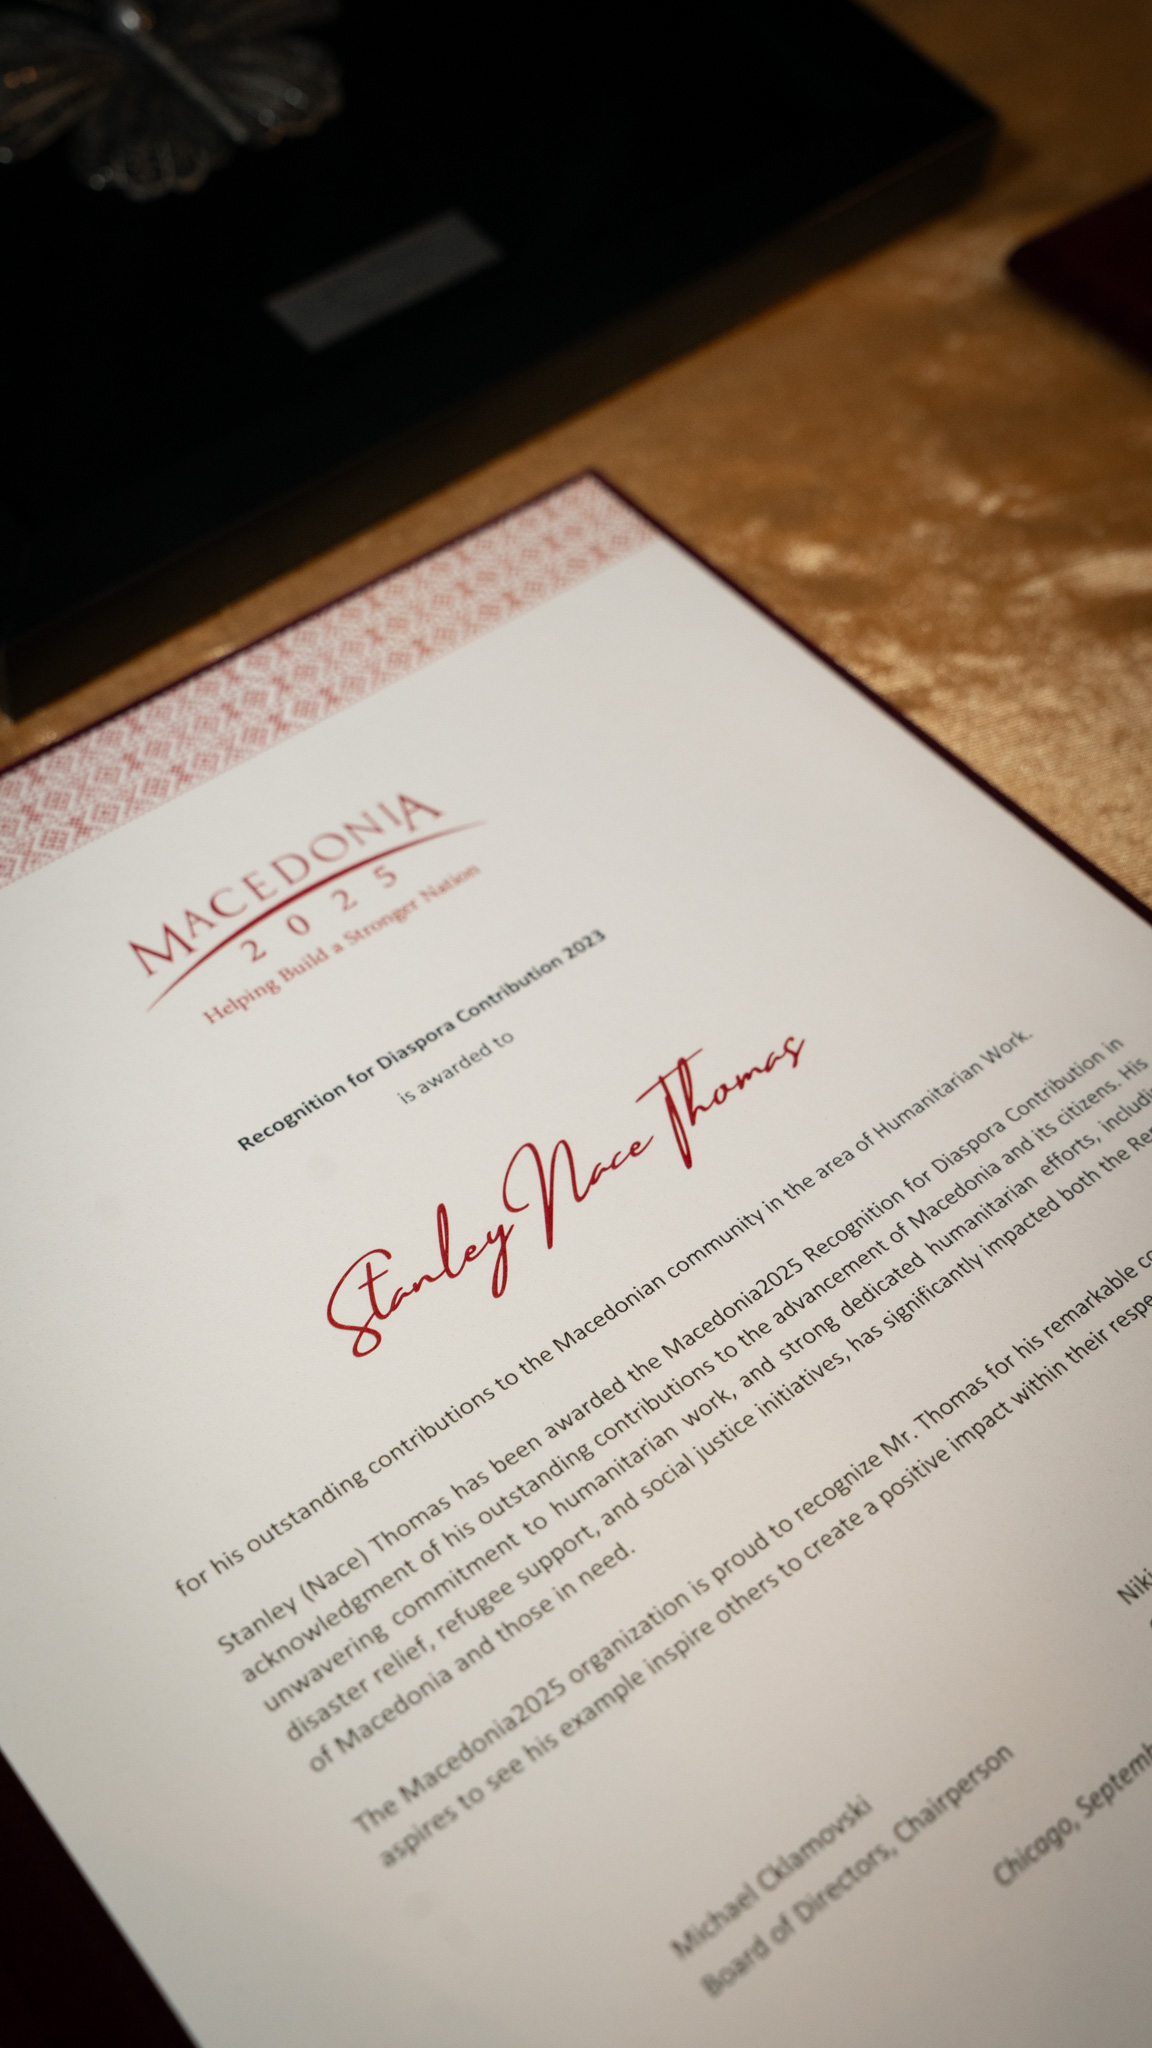 MACEDONIA
2025
Helping Build a Stronger Nation
Recognition for Diaspora Contribution 2023
is awarded to
Stanley Nace Thomas
for his outstanding contributions to the Macedonian community in the area of Humanitarian Work.
Stanley (Nace) Thomas has been awarded the Macedonia2025 Recognition for Diaspora Contribution in
acknowledgment of his outstanding contributions to the advancement of Macedonia and its citizens. His
unwavering commitment to humanitarian work, and strong dedicated humanitarian efforts,
disaster relief, refugee support, and social justice initiatives, has significantly impacted both the
of Macedonia and those in need.
The Macedonia2025 organization is proud to recognize Mr. Thomas for his remarkable
aspires to see his example inspire others to create a positive impact within their
Michael Cklamovski
Board of Directors, Chairperson
Chicago,